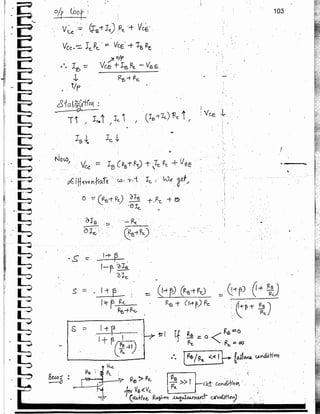 103
o/p Loop:
Vcc = (IB+Ic) Rc + VCE
Vcc - Ic Rc = VCE + IB Rc
∴ IB = VCE + IB RC - VBE
RB + RC
I/P
Stabilization :
T↑ , Ico↑ , Ic↑ , (IB+Ic) Rc ↑ , VCE ↓
IB ↓ Ic ↓
Now, Vcc = IB (RB+Rc) + Ic Rc + VBE
differentiate w.r.t Ic, We get,
0 = (RB+Rc) ∂IB/∂Ic + Rc + 0
∂IB/∂Ic = -Rc/(RB+Rc)
S = 1+β / 1-β ∂IB/∂Ic
S = 1+β / 1+β Rc/RB+Rc = (1+β) (RB+Rc) / RB + (1+β) Rc = (1+β) (1+ RB/Rc) / (1+β+ RB/Rc)
S = 1+β / 1+β 1/(RB/Rc +1) → ≈1 If RB/Rc ≈ 0 RB=0 Rc=∞
∴ RB/Rc <<1 → condition
RB Rc Vcc RB > Rc RB/Rc >>1 → ckt condition,
for VB < Vc
(Active Region requirement condition)